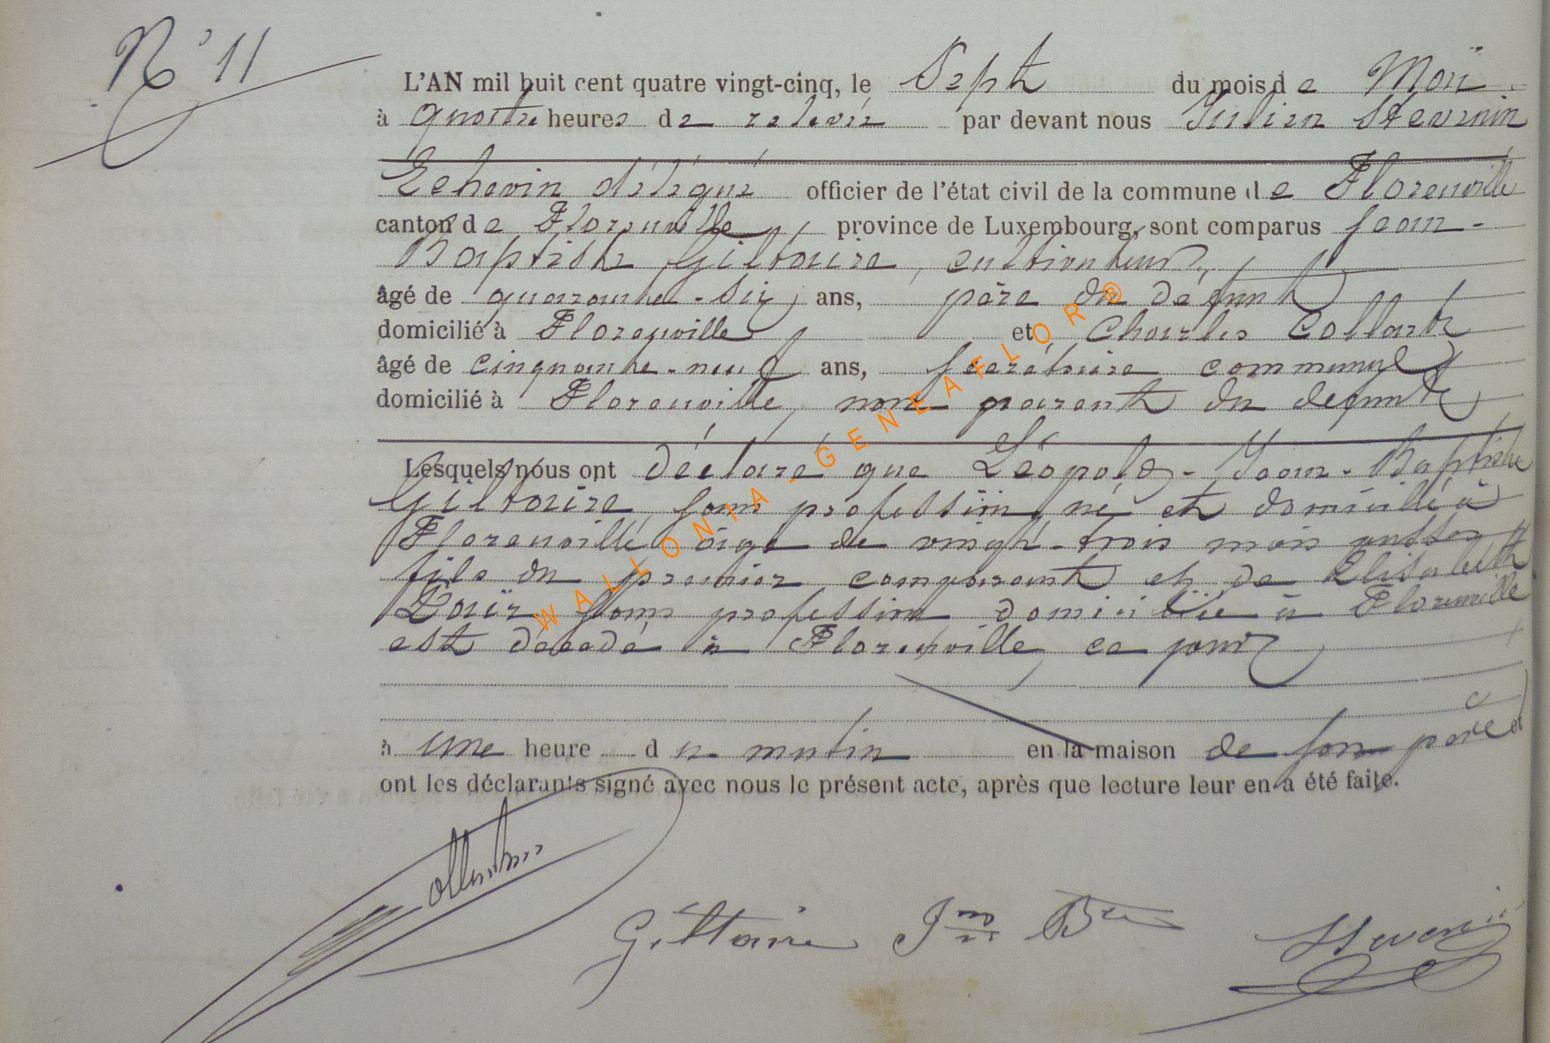 N° 11
L'AN mil huit cent quatre vingt-cinq, le Sept du mois de Mai
à quatre heures de relevée par devant nous Julien Stevenin
Echevin délégué officier de l'état civil de la commune de Florenville
canton de Florenville province de Luxembourg, sont comparus Jean-
Baptiste Giltaire, cultivateur,
âgé de quarante-six ans, père du défunt
domicilié à Florenville et Charles Collart
âgé de cinquante-neuf ans, secrétaire communal
domicilié à Florenville, non parent du defunt
Lesquels nous ont déclaré que Léopold-Jean-Baptiste
Giltaire sans profession, né et domicilié à
Florenville âgé de vingt-trois mois
fils du premier comparant et de Elisabeth
sans profession domiciliée à Florenville
est décedé à Florenville, ce jour
à une heure du matin en la maison de son père et
ont les déclarants signé avec nous le présent acte, après que lecture leur en a été faite.
Giltaire Jn Bte
Stevenin
WALLONIA-GENEAFLOR®